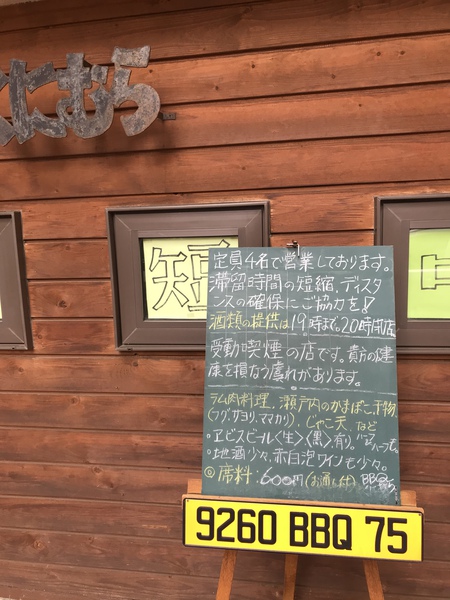 くにむら
短
中
定員4名で営業しております。
滞留時間の短縮、ディスタ
ンスの確保にご協力を!
酒類の提供は19時まで。20時閉店
受動喫煙の店です。貴方の健
康を損なう虞れがあります。
ラム肉料理、瀬戸内のかまぼこ、干物
(フグ、サヨリ、ママカリ)、じゃこ天、など
・ヱビスビール〈生〉〈黒〉有り。
・地酒少々、赤白泡ワインも少々。
◎席料:600円(お通し付)
9260 BBQ 75